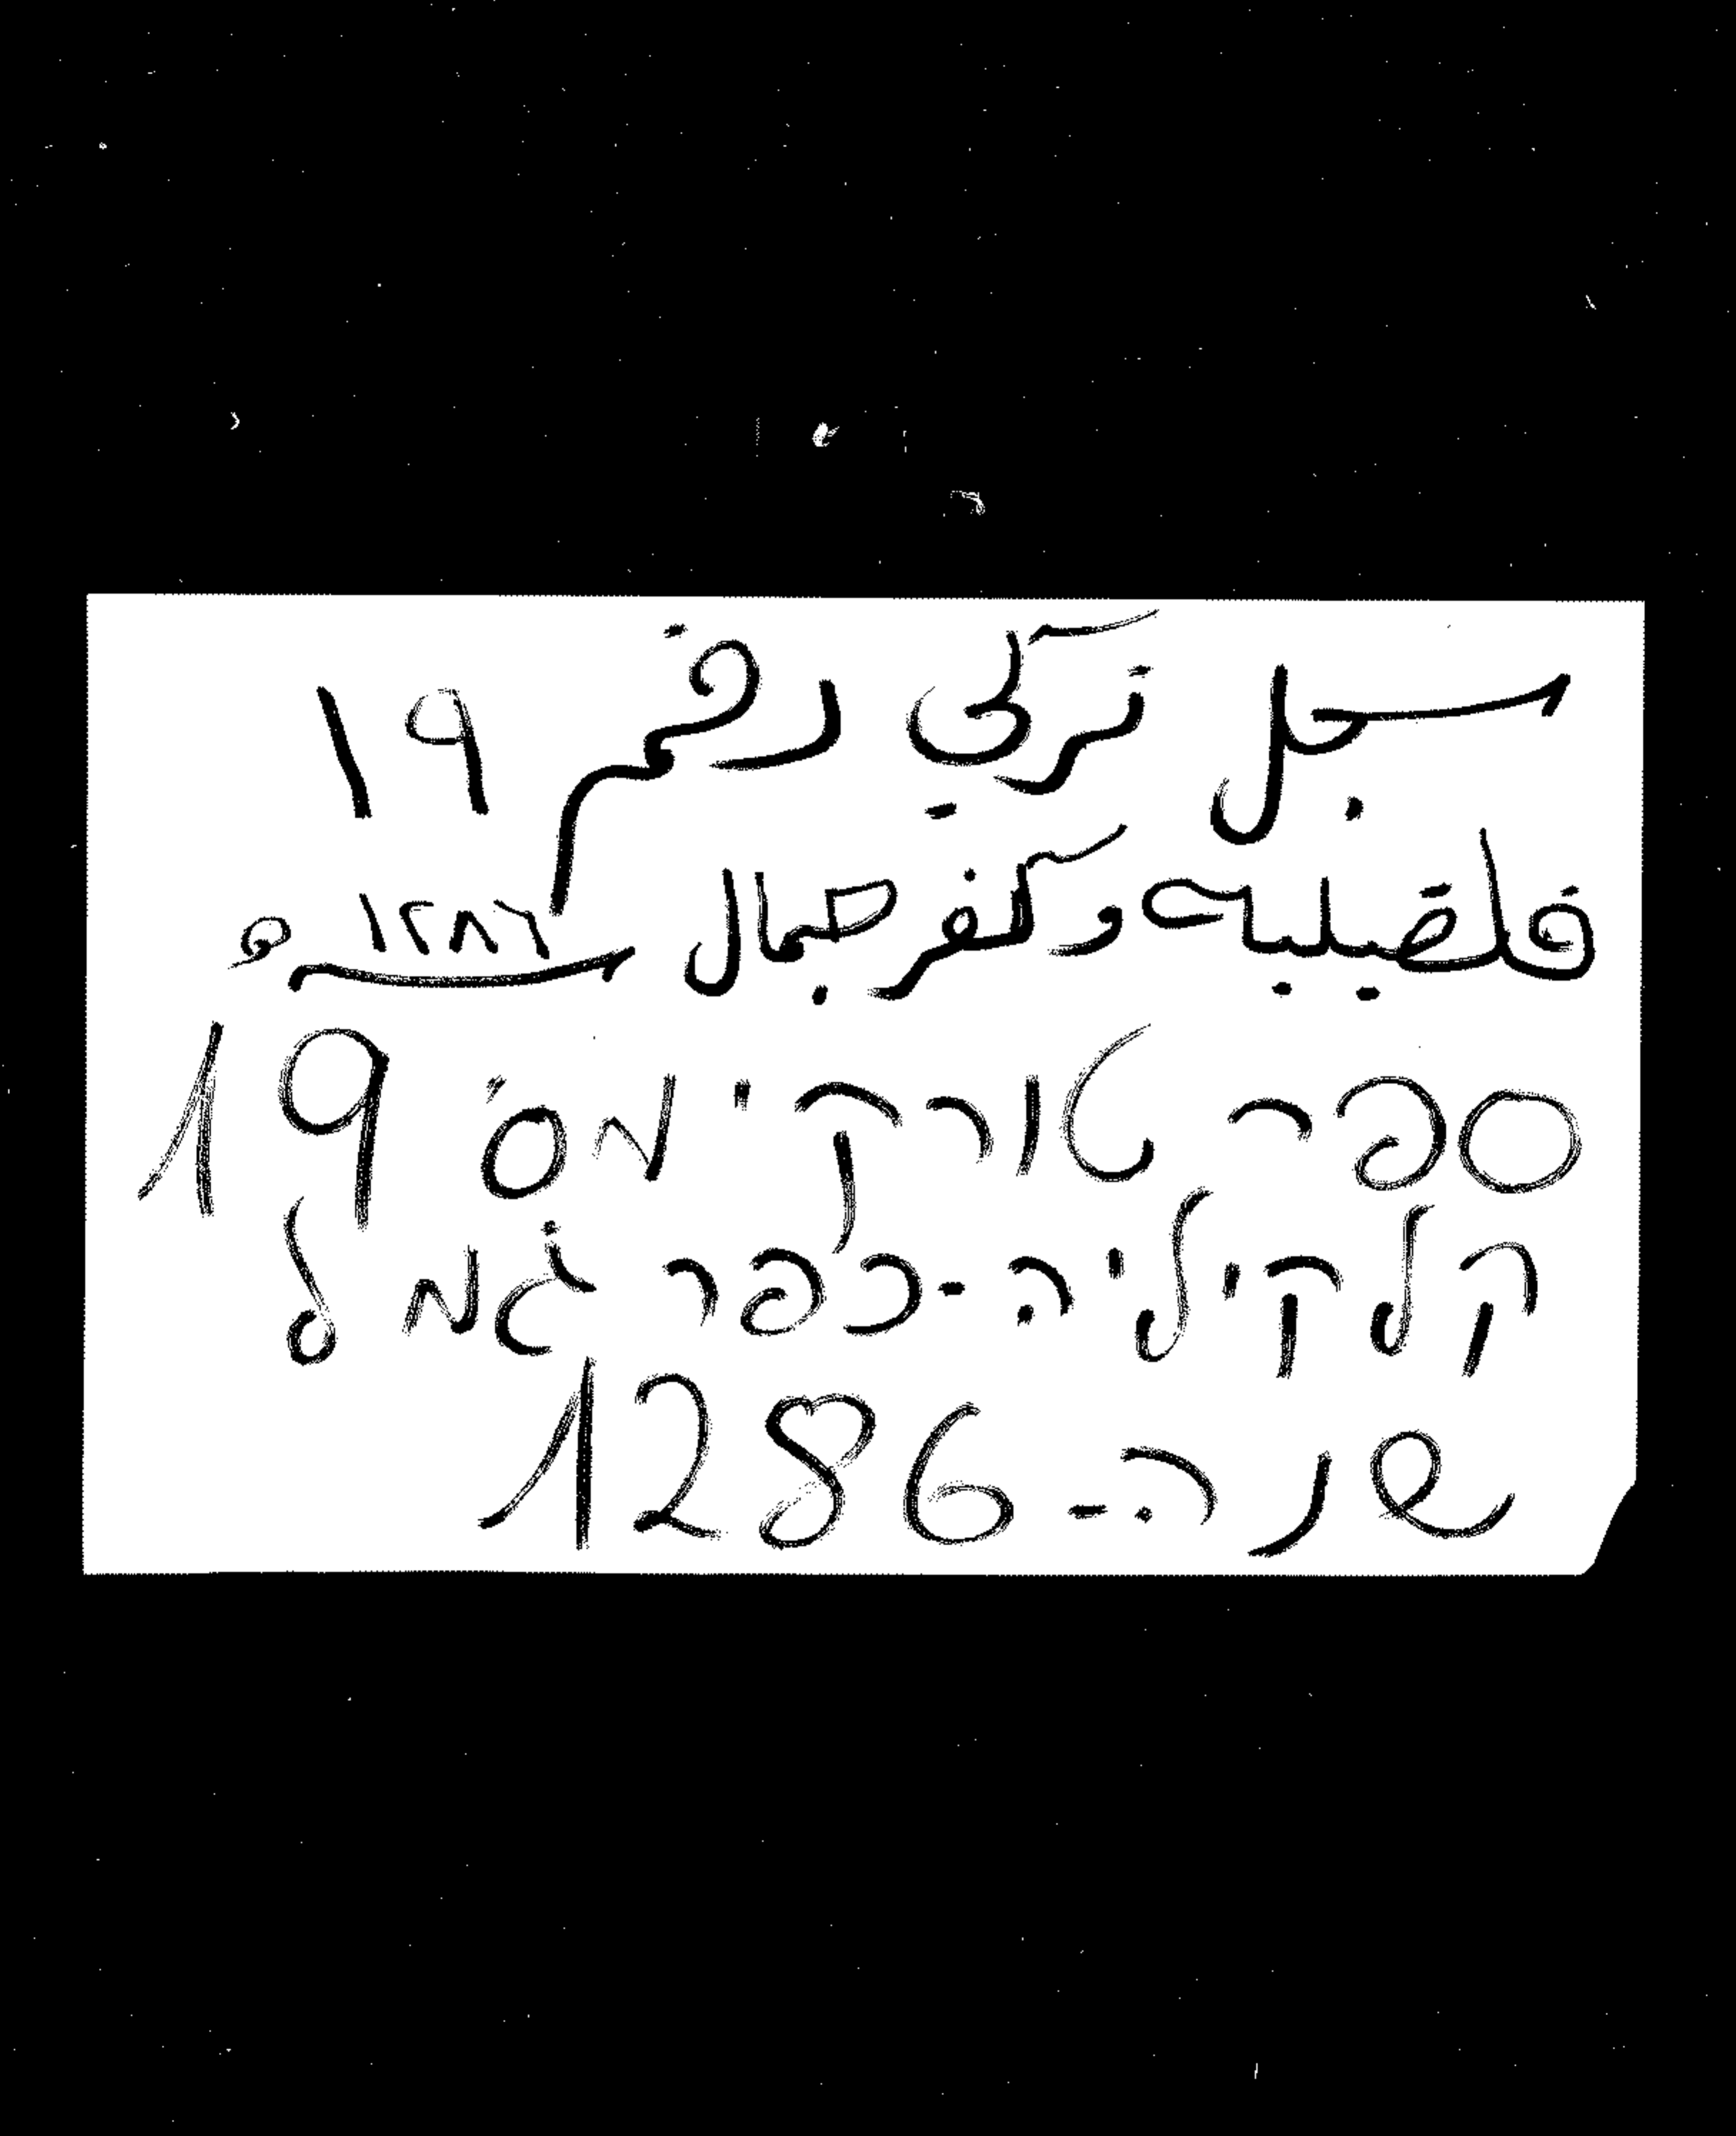 سجل تركي رقم ١٩
قلقيليه وكفر جمال سنة ١٢٨٦ هـ
ספר טורקי מס' 19
קלקיליה - כפר ג'מל
שנה - 1286